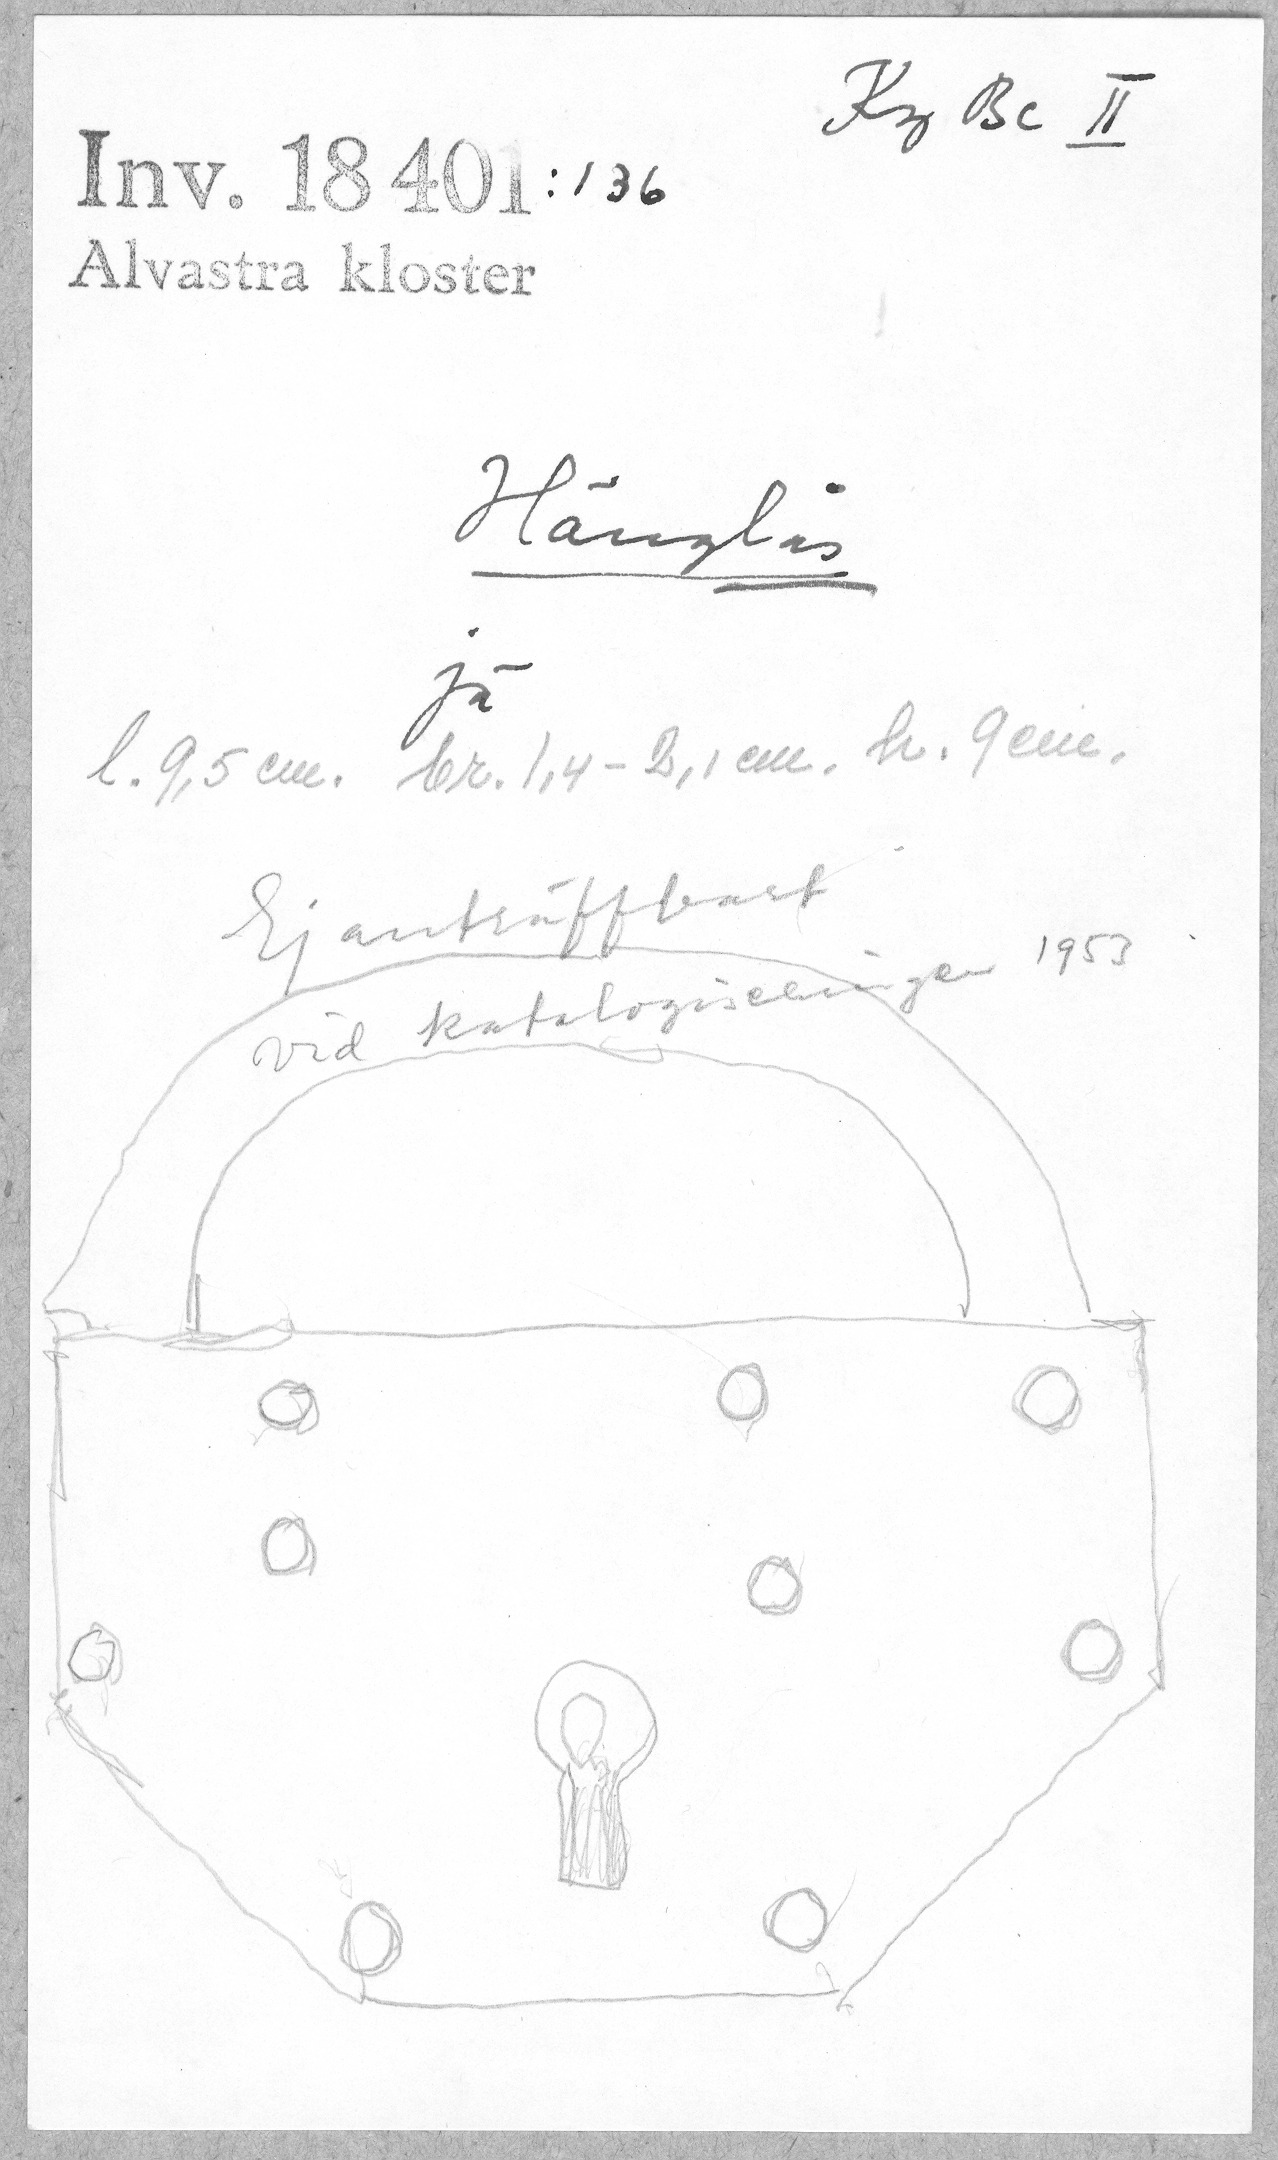 Kz Bc II
Inv. 18 401:136
Alvastra kloster
Hänglås
jä
l. 9,5 cm. br. 1,4 - 2,1 cm. h. 9 cm.
Ej anträffbart
vid katalogiseringen 1953